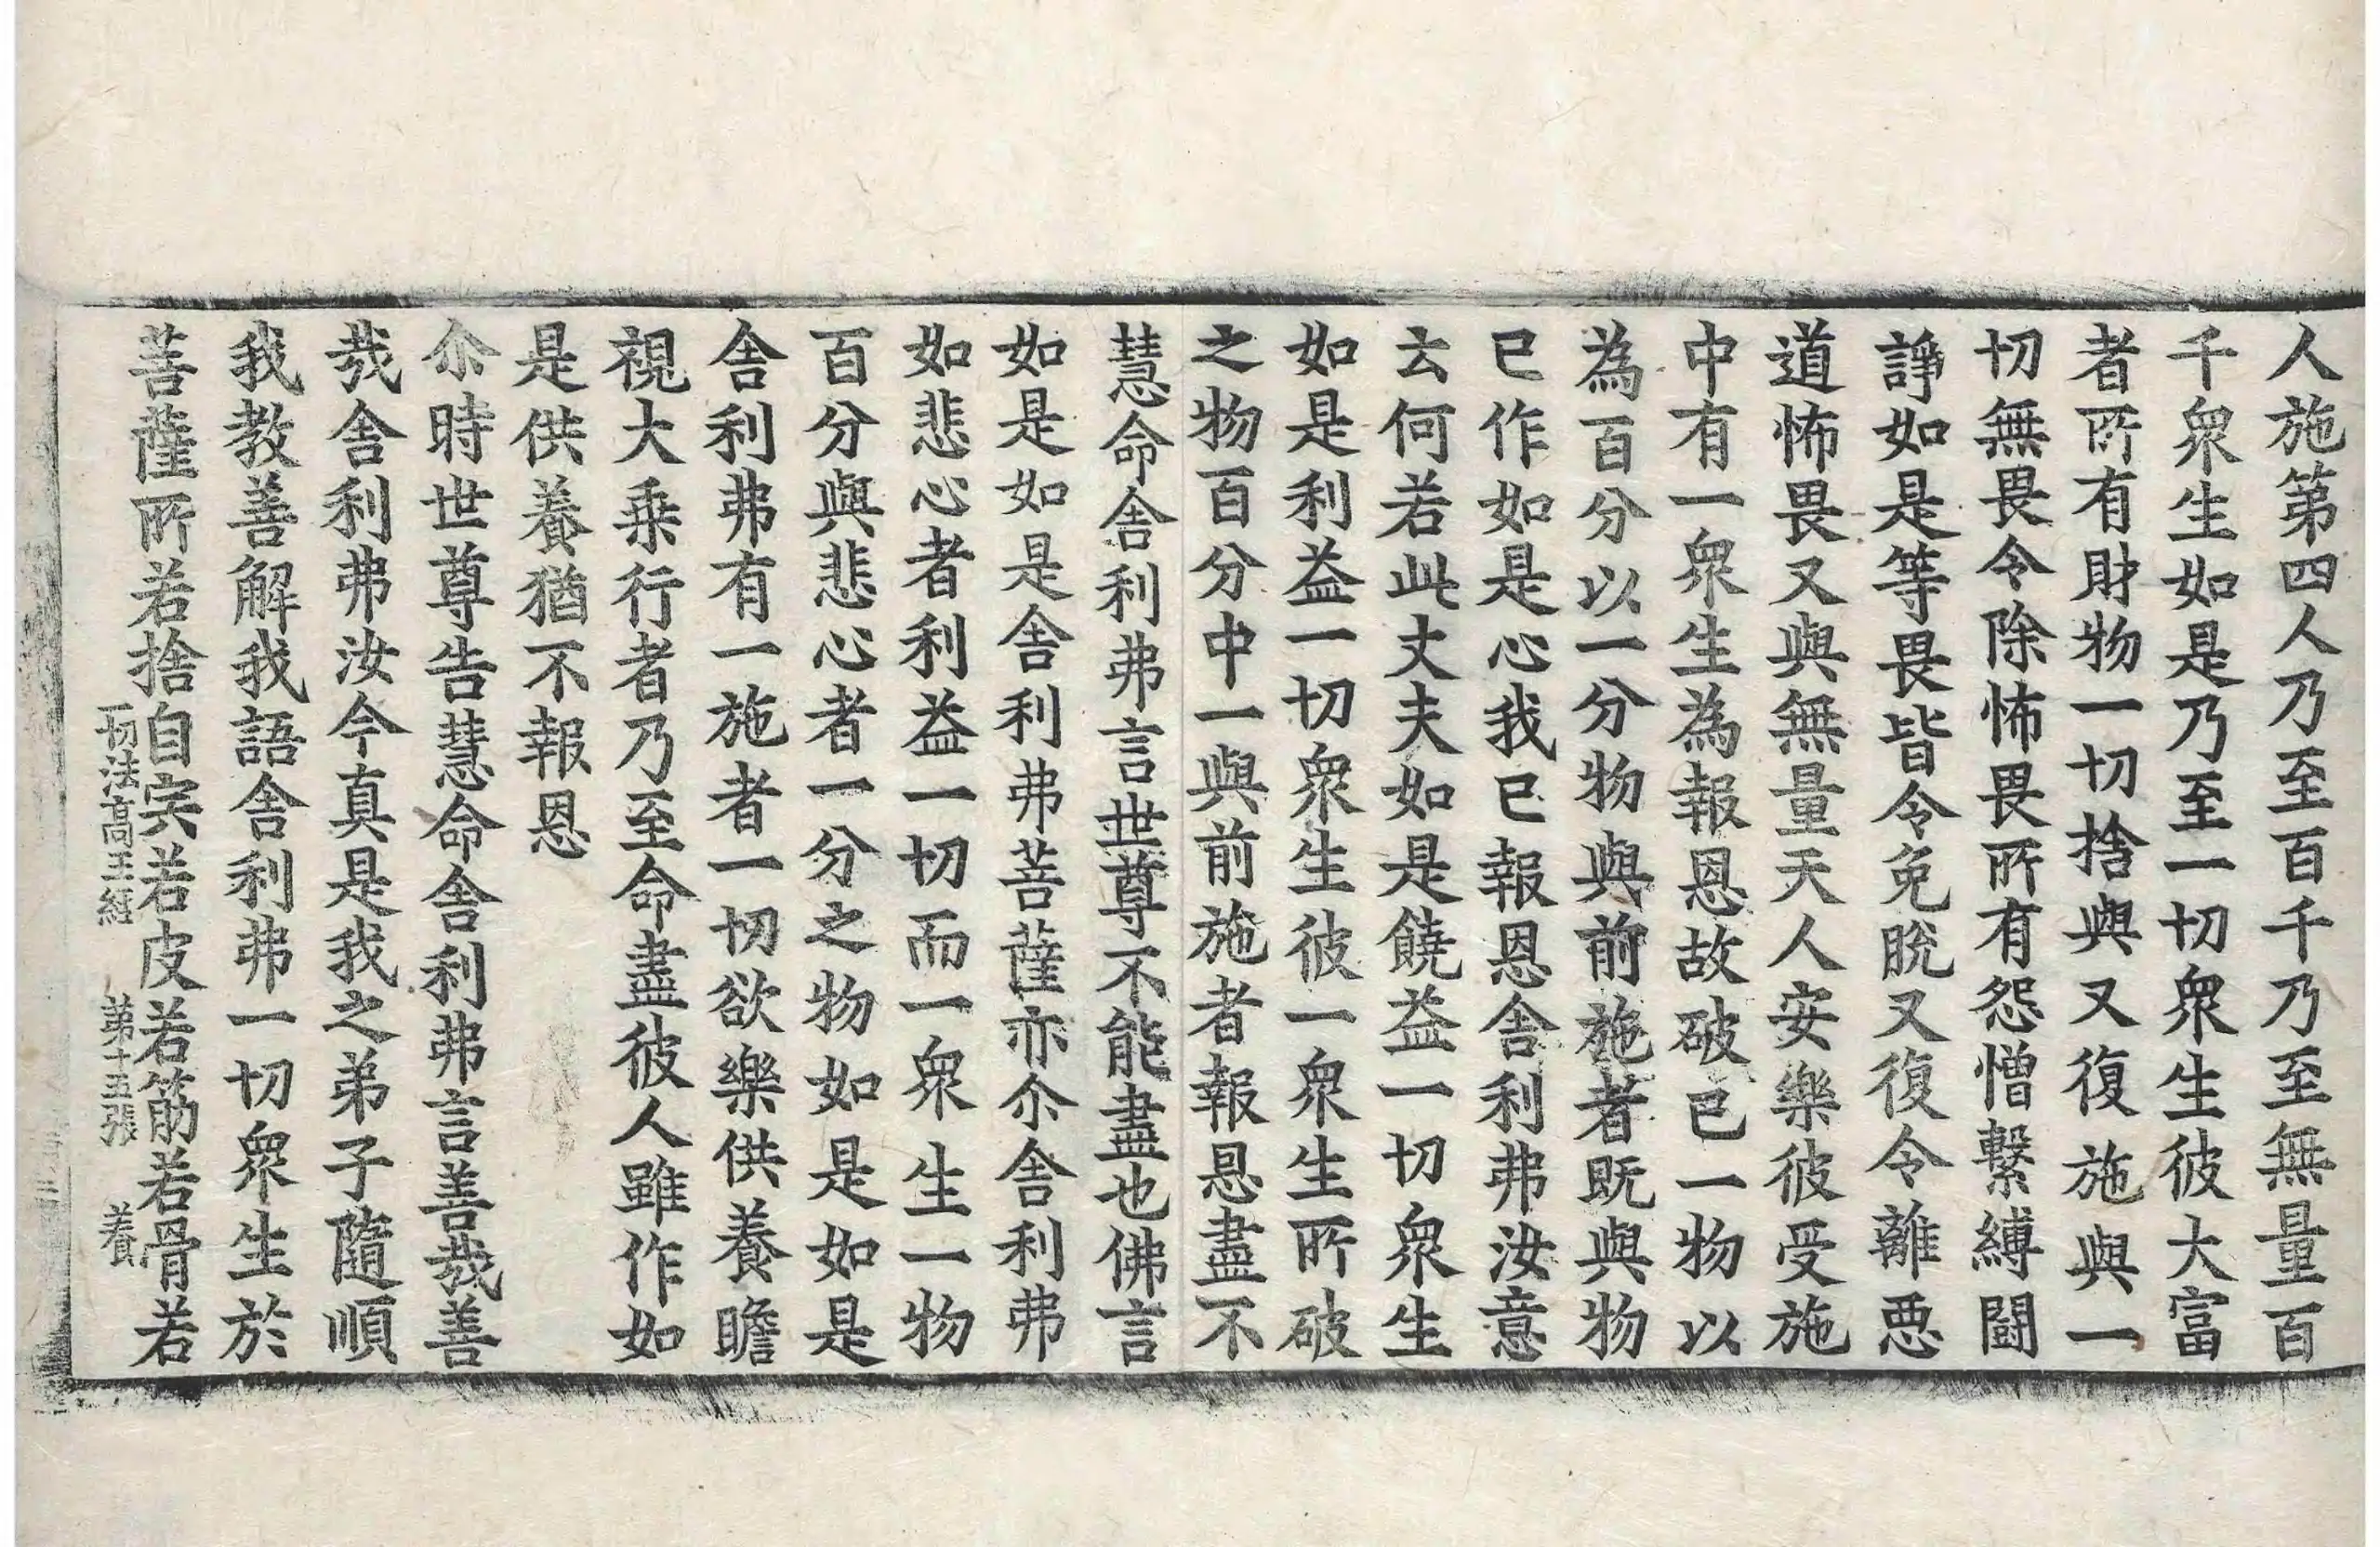 人施第四人乃至百千乃至無量百
千衆生如是乃至一切衆生彼大富
者所有財物一切捨與又復施與一
切無畏令除怖畏所有怨憎繫縛鬪
諍如是等畏皆令免脫又復令離惡
道怖畏又與無量天人安樂彼受施
中有一衆生為報恩故破已一物以
為百分以一分物與前施者既與物
已作如是心我已報恩舍利弗汝意
云何若此丈夫如是饒益一切衆生
如是利益一切衆生彼一衆生所破
之物百分中一與前施者報恩盡不
慧命舍利弗言世尊不能盡也佛言
如是如是舍利弗菩薩亦尒舍利弗
如悲心者利益一切而一衆生一物
百分與悲心者一分之物如是如是
舍利弗有一施者一切欲樂供養瞻
視大乗行者乃至命盡彼人雖作如
是供養猶不報恩
尒時世尊告慧命舍利弗言善哉善
哉舍利弗汝今真是我之弟子隨順
我教善解我語舍利弗一切衆生於
菩薩所若捨自宍若皮若筋若骨若
一切法高王經 第十五張 養